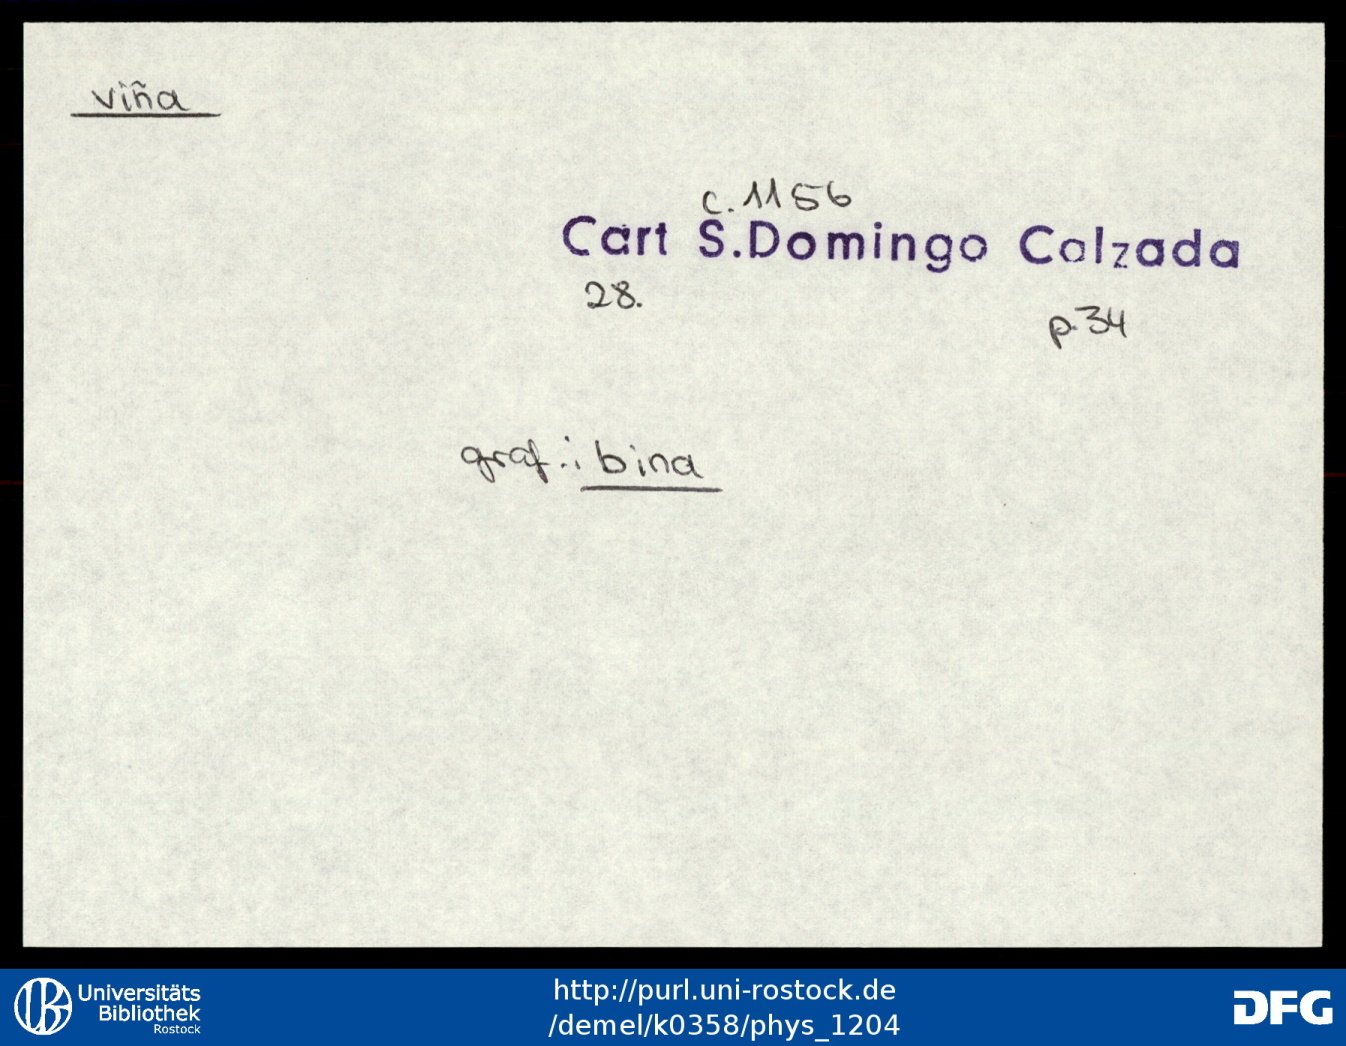 viña
c. 1156
Cart S.Domingo Calzada
28.
p. 34
graf.: bina
Universitäts
Bibliothek
Rostock
http://purl.uni-rostock.de
/demel/k0358/phys_1204
DFG